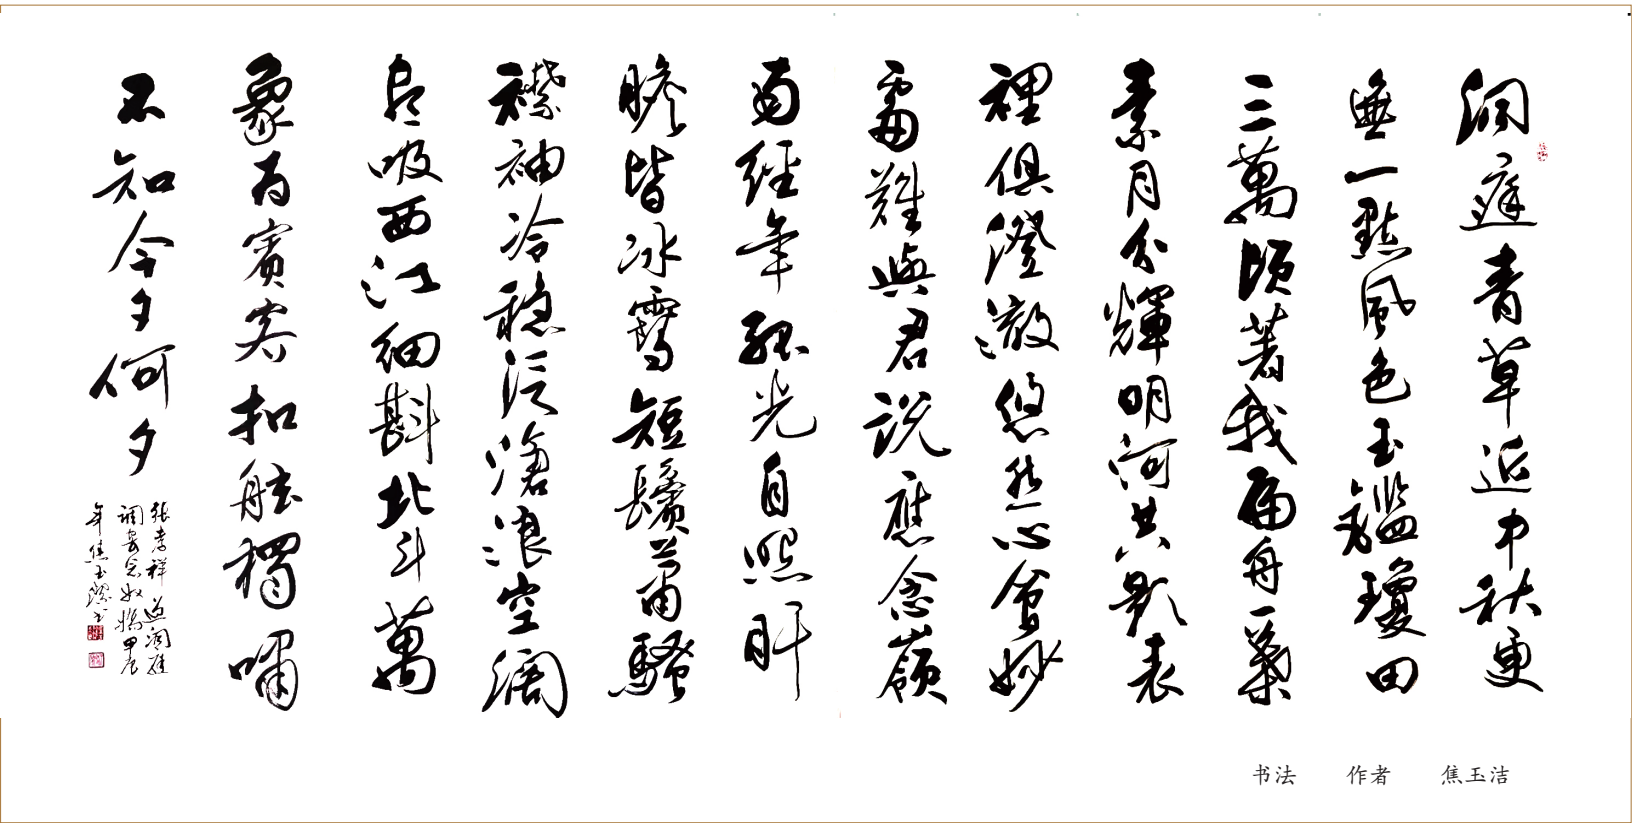 洞庭青草近中秋更
無一點風色玉鑑瓊田
三萬頃著我扁舟一葉
素月分輝明河共影表
裡俱澄澈悠然心會妙
處難與君説應念嶺
南經年孤光自照肝
膽皆冰雪短鬢蕭騷
襟袖冷穩泛滄浪空闊
尽吸西江細斟北斗萬
象為賓客扣舷獨嘯
不知今夕何夕
張孝祥 過洞庭
調寄念奴嬌甲辰
年焦玉潔书
书法 作者 焦玉洁